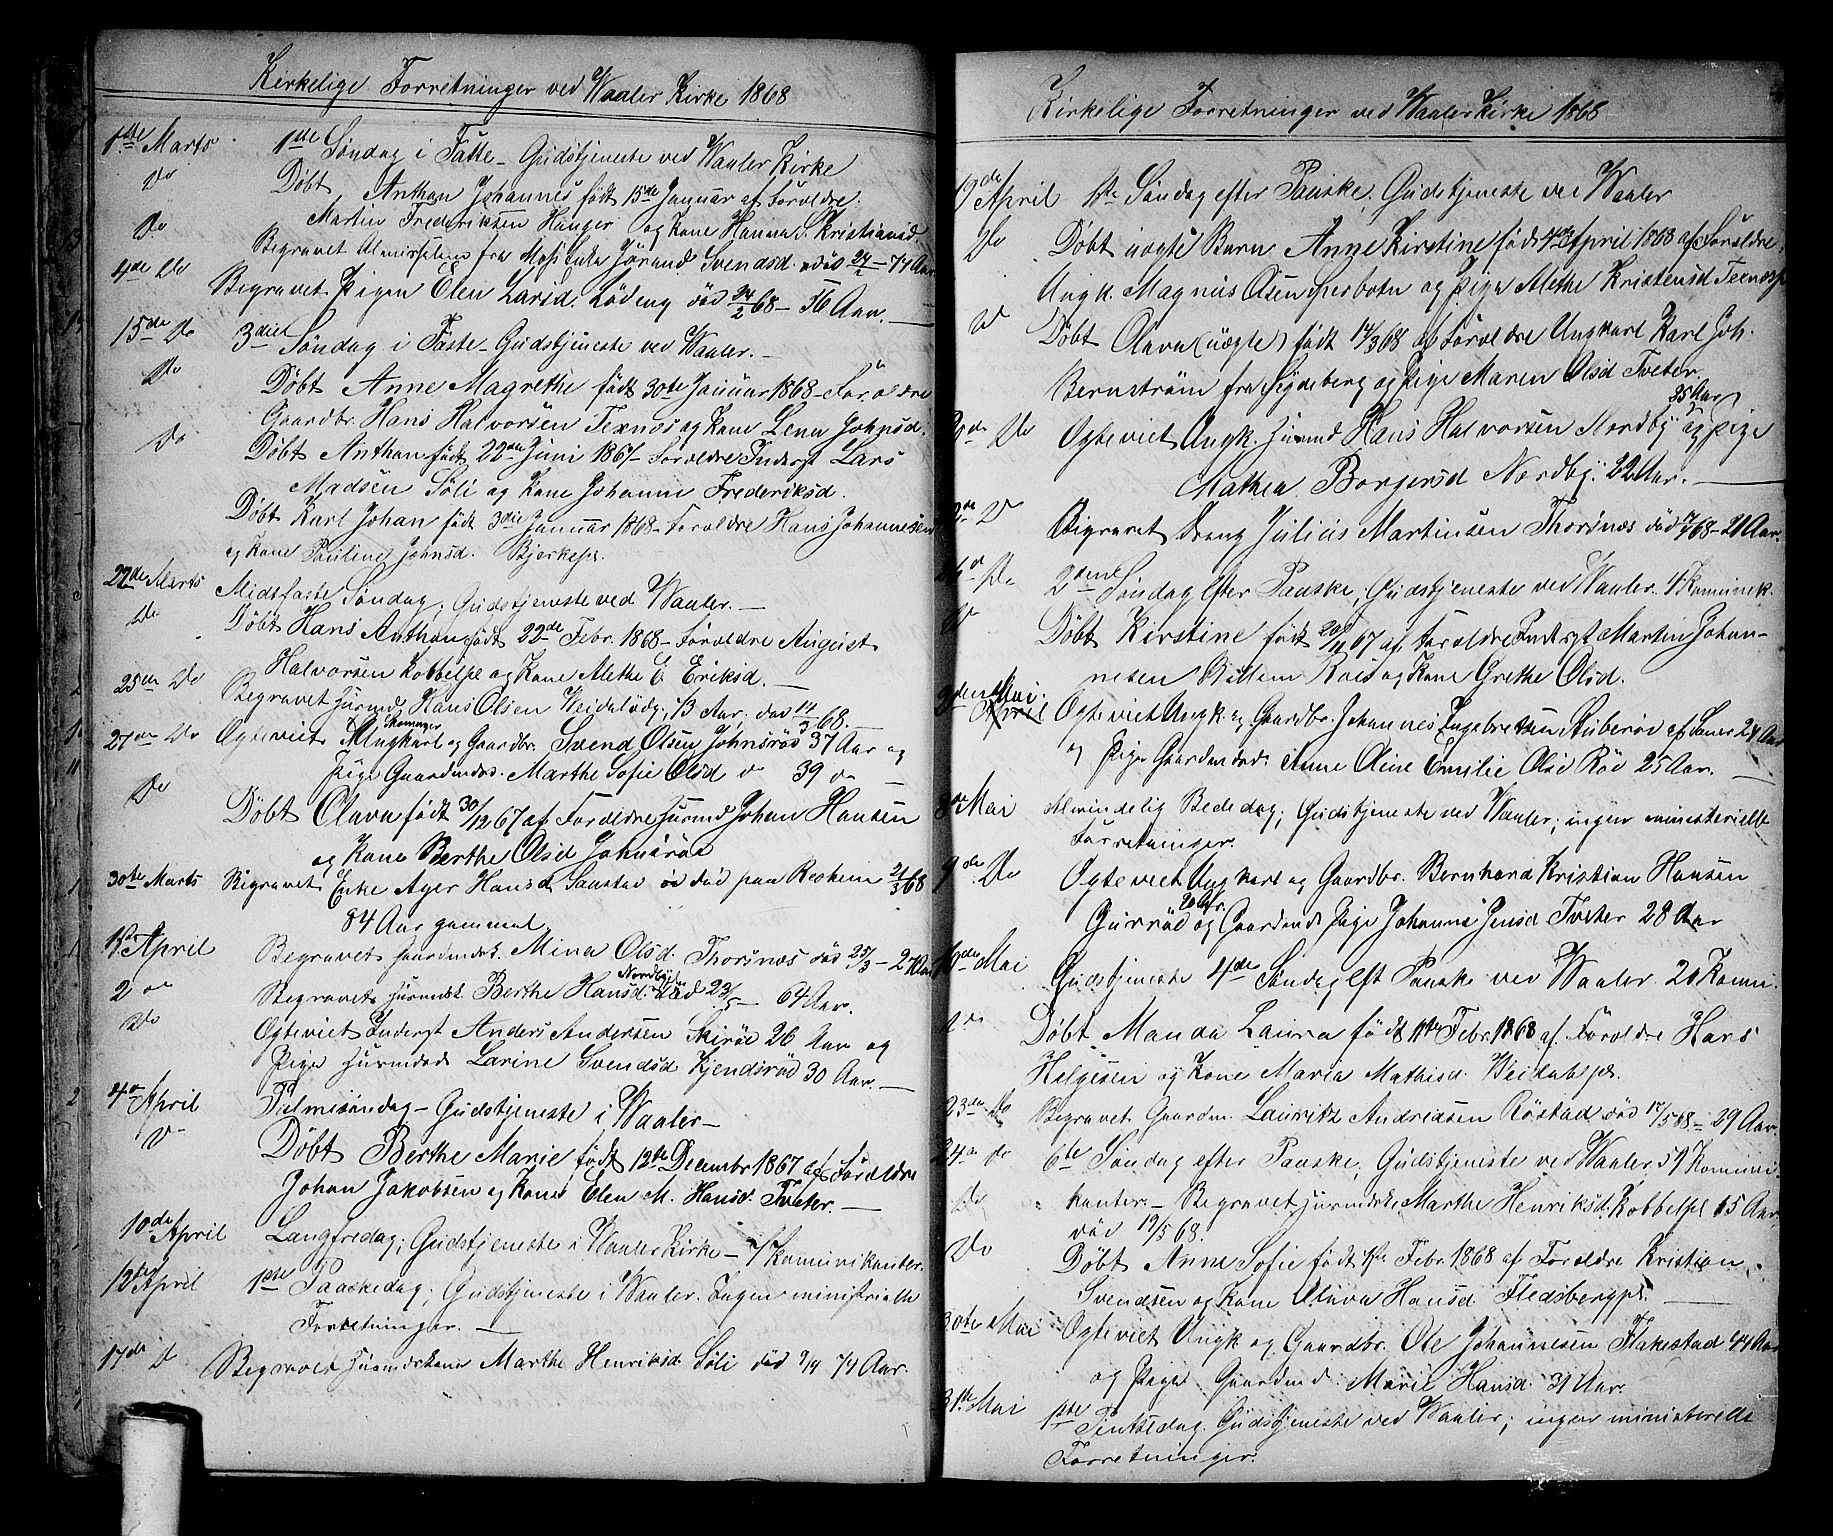 Kirkelige Forretninger ved Waaler Kirke 1868
1ste Marts 1ste Søndag i Faste – Gudstjeneste ved Waaler Kirke
Do Døbt Anthon Johannes født 15de Januar af Foroldre:
Martin Frederiksen Hanger og Kone Hanna S. Kristiansd.
Do Begravet Almisselem fra Jørand Svendsd. død 24/2 – 77 Aar
4de Do Begravet Pigen Elen Larsd. Lødeng død 24/2 68 – 56 Aar. —
15de Do 3die Søndag i Faste – Gudstjeneste ved Waaler. –
Do Døbt Anne Magrethe født 30te Januar 1868 – Foroldre
Gaardbr. Hans Halvorsen Texnes og Kone Lena Johnsd.
Do Døbt Anthon født 22de Juni 1867 – Foroldre Inderst Lars
Madsen Søli og Kone Johanne Frederiksd.
Døbt Karl Johan født 3die Januar 1868 – Foroldre Hans Johannesen
og Kone Pauline Johnsd. Bjerkepl.
22de Marts Midfaste Søndag; Gudstjeneste ved Waaler. —
Do Døbt Hans Anthon født 22de Febr. 1868 – Foroldre August
Halvorsen Kobbelpl. og Kone Alethe E. Eriksd. —
25de Do Begravet Husmd Hans Olsen, 73 Aar, død 14/3 68. —
27de Do Ogteviet Ungkarl og Gaardbr. Svend Olsen Johnsrød 37 Aar og
Pige Gaardmds. Marthe Sofie Olsd Do 39 Do —
Do Døbt Olava født 30/12 67 af Foroldre Husmd Johan Hansen
og Kone Berthe Olsd Johnsrød
30te Marts Begravet Enke Hansd. Saustad død paa 21/3 68
84 Aar gammel
1ste April Begravet Gaardmdsk. Mina Olsd. Thorsnæs død 25/3 – 27 Aar
2den Begravet Husmdsk. Berthe Hansd. Nordby død 23/3 – 64 Aar.
Do Ogteviet Inderst Anders Andersen Skirød 26 Aar og
Pige Husmdsd. Larine Svendsd Kjendsrød 30 Aar. —
4de April Palmesøndag – Gudstjeneste i Waaler —
Do Døbt Berthe Marie født 12te Decembr 1867 af Foroldre
Johan Jakobsen og Kone Elen M. Hansd. Tveter. —
10de April Langfredag; Gudstjeneste i Waaler Kirke – Komunikanter.
12te April 1ste Paaskedag; Gudstjeneste i Waaler. Ingen ministrielle
Forretninger. —
17de Do Begravet Husmdskone Marthe Henriksd. Søli død 9/4 74 Aar.
Kirkelige Forretninger ved Waaler Kirke 1868
19de April 1ste Søndag efter Paaske; Gudstjeneste ved Waaler
Do Døbt uægte Barn Anne Kirstine født 4de April 1868 af Foroldre:
Ungk. Magnus Olsen og Pige Alethe Kristensd Texnæs
Do Døbt Olava (uægte) født 14/3 68 af Foroldre Ungkarl Karl Joh.
Bernstrøm fra og Pige Maren Olsd Tveter.
Do Ogteviet Ungk. Husmd Hans Halvorsen Nordby 35 Aar og Pige
Mathea Borgersd Nordby: 22 Aar. —
Do Begravet Dreng Julius Martinsen Thorsnæs død 17/4 68 – 21 Aar.
26de Do 2den Søndag efter Paaske, Gudstjeneste ved Waaler. 4 Komunik.
Do Døbt Kirstine født 20/11 67 af Foroldre Inderst Martin Johan-
nesen Roes og Kone Grethe Olsd.
Mai Ogteviet Ungk. og Gaardbr. Johannes Engebretsen af Saner 24 Aar
og Pige Gaardmdsd. Anne Oline Emilie Olsd Rød 25 Aar. —
8de Mai Almindelig Bededag; Gudstjeneste ved Waaler; ingen ministerielle
Forretninger.
9de Do Ogteviet Ungkarl og Gaardbr. Bernhard Kristian Hansen
Gurrød 20 Aar. og Gaardmds Pige Johanne Jensd Tveter 28 Aar
10de Mai Gudstjeneste 4de Søndag Eft Paaske ved Waaler 20 Komu.
Do Døbt Manda Laura født 11te Febr. 1868 af. Foroldre Hans
Helgesen og Kone Maria Mathisd.
23de Do Begravet Gaardm. Lauritz Andreasen Røstad død 17/5 68 – 29 Aar.
24de Do 6te Søndag efter Paaske; Gudstjeneste ved Waaler 51 Kommu-
Do kanter. – Begravet Husmdsk. Marthe Henriksd. Kobbelpl 65 Aar.
død 19/5 68.
Do Døbt Anne Sofie født 1ste Febr. 1868 af Foroldre Kristian
Svendsen og Kone Olava Hansd. Fledsbergpl. —
30te Mai Ogteviet Ungk og Gaardbr. Ole Johannesen Flakestad 44 Aar
og Pige Gaardmd. Marie Hansd. 31 Aar.
31te Mai 1ste Pintsedag. Gudstjeneste ved Waaler; ingen ministerielle
Forretninger.